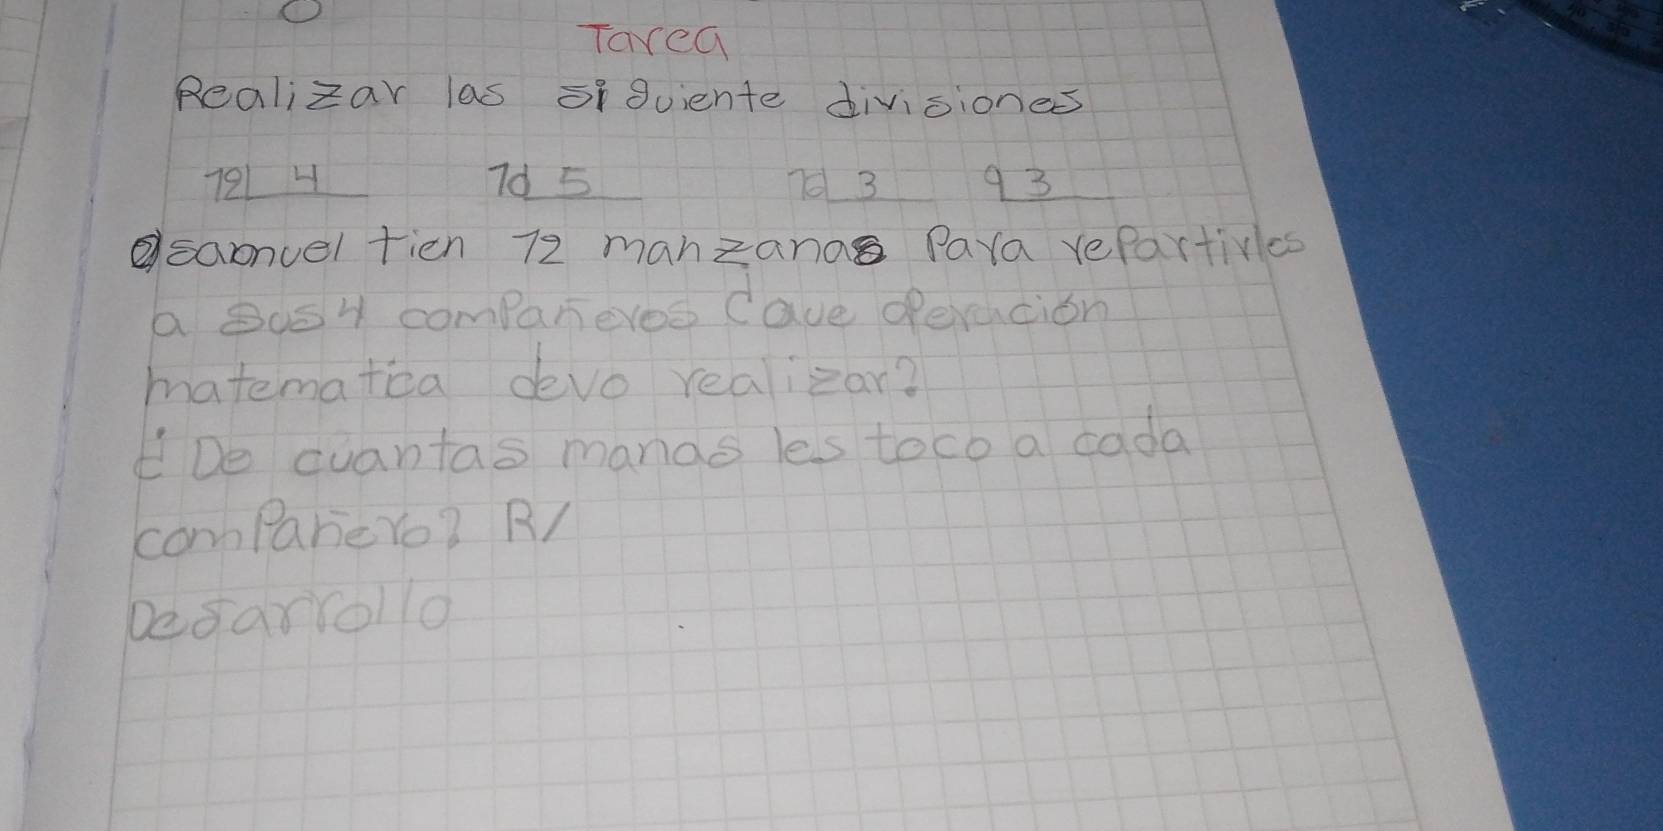 Tarea
Realizar las siguiente divisiones
12 4 10 5 10 3 9 3
samuel tien 12 manzanas Para repartirles
a sus 4 compañeros Cave operación
matematica devo realizar?
De cuantas manas les toco a cada
compañero? R/
Desarrollo